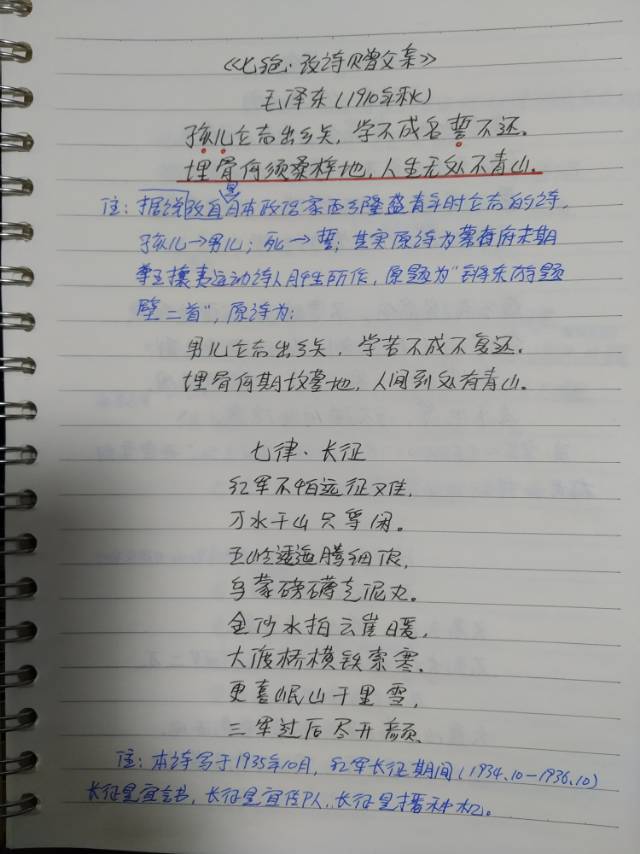 《七绝·改诗赠父亲》
毛泽东(1910年秋)
孩儿立志出乡关,学不成名誓不还。
埋骨何须桑梓地,人生无处不青山。
注:据说改自日本政治家西乡隆盛青年时立志的诗,
孩儿→男儿;死→誓;其实原诗为幕府末期
尊王攘夷运动诗人月性所作,原题为"将东游题
壁二首",原诗为:
男儿立志出乡关,学若不成不复还。
埋骨何期坟墓地,人间到处有青山。
七律·长征
红军不怕远征难,
万水千山只等闲。
五岭逶迤腾细浪,
乌蒙磅礴走泥丸。
金沙水拍云崖暖,
大渡桥横铁索寒。
更喜岷山千里雪,
三军过后尽开颜。
注:本诗写于1935年10月,红军长征期间(1934.10-1936.10)
长征是宣言书,长征是宣传队,长征是播种机。